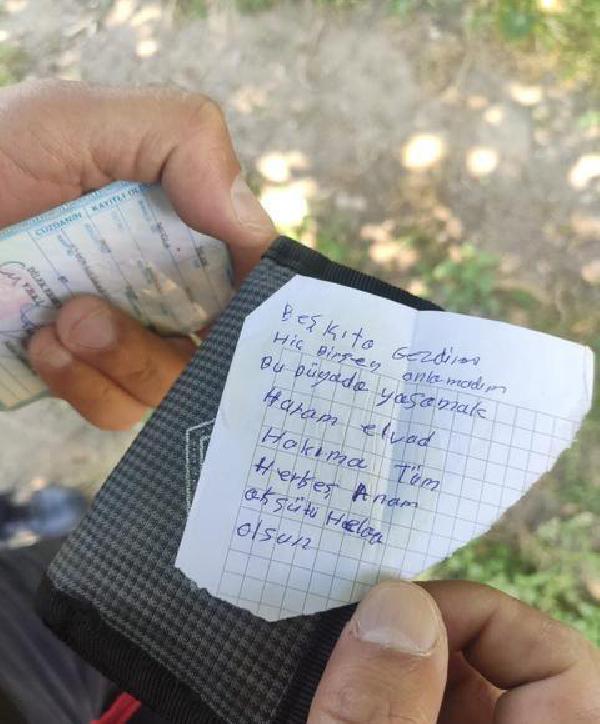 CÜZDANIN
KAYITLI OL
Beş kıta Gezdim
Hiç Birşey anlamadım
Bu düyada yaşamak
Haram elvad
Hakıma Tüm
Herkeş Anam
akşütü Helap
olsun